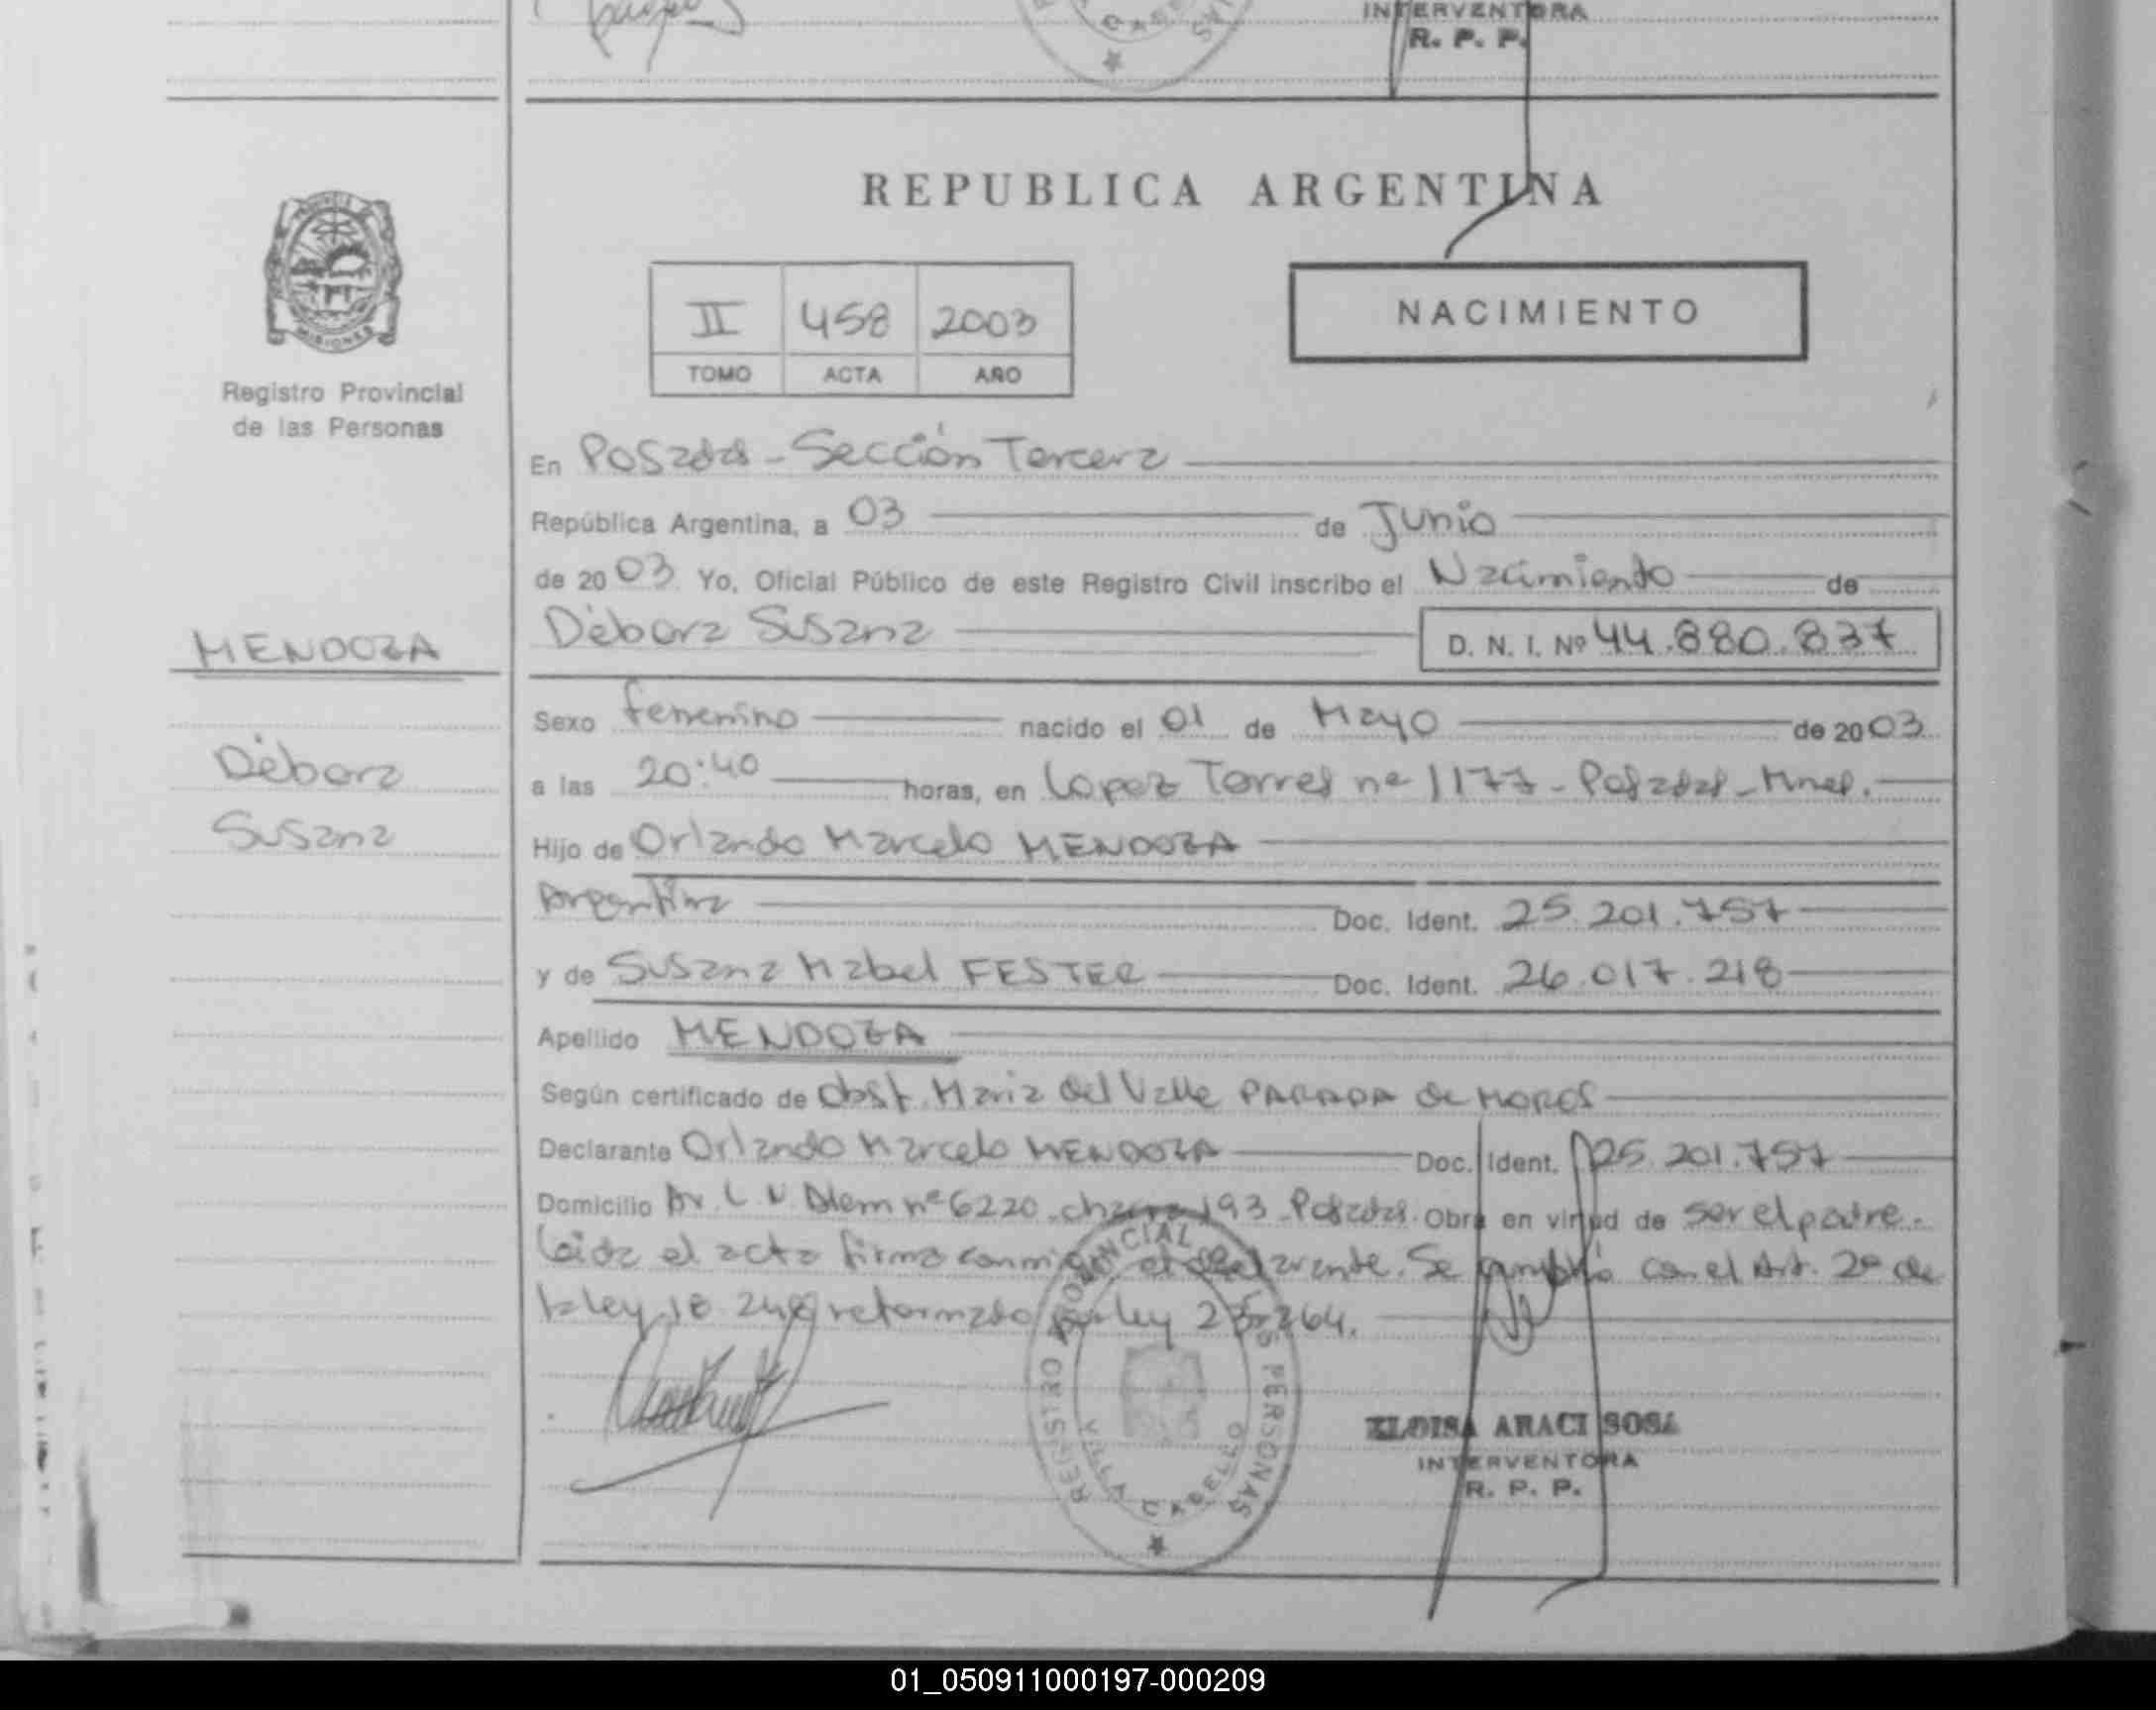 INTERVENTORA
R. P. P.
REPUBLICA ARGENTINA
MISIONES
Registro Provincial
de las Personas
II 458 2003
TOMO ACTA AÑO
NACIMIENTO
En Posadas - Sección Tercera
República Argentina, a 03 de Junio
de 2003. Yo, Oficial Público de este Registro Civil inscribo el Nacimiento de
MENDOZA
Débora Susana D. N. I. Nº 44.880.837
Sexo femenino nacido el 01 de Mayo de 2003
Débora
a las 20:40 horas, en Lopez Torres nº 1177 - Posadas - Mnes.
Susana
Hijo de Orlando Marcelo MENDOZA
Argentina Doc. Ident. 25.201.757
y de Susana Mabel FESTER Doc. Ident. 26.017.218
Apellido MENDOZA
Según certificado de Obst. Maria del Valle PARADA de MORES
Declarante Orlando Marcelo MENDOZA Doc. Ident. 25.201.757
Domicilio Av. L. N. Alem nº 6220 - chacra 193 - Posadas. Obra en virtud de ser el padre.
Leida el acta firma conmigo el declarante. Se cumplió con el Art. 2º de
la ley 18.248 reformado por ley 23.264.
REGISTRO PROVINCIAL DE LAS PERSONAS
VILLA CABELLO
ELOISA ARACI SOSA
INTERVENTORA
R. P. P.
01_050911000197-000209